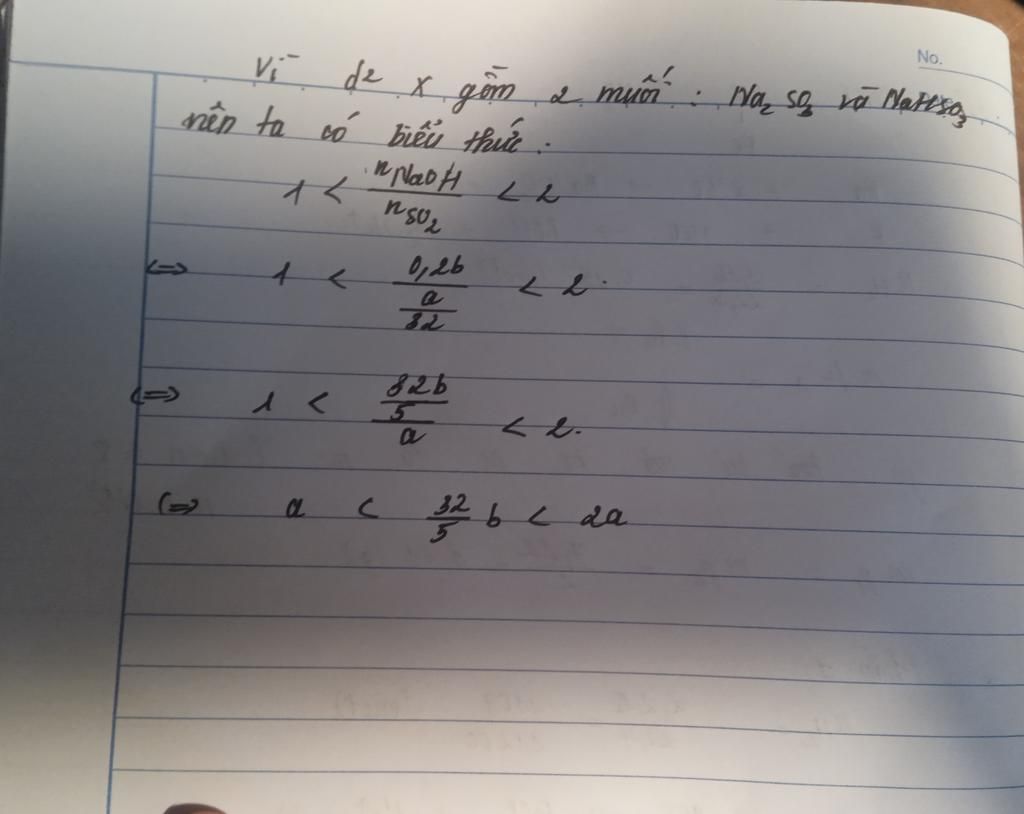 No.
Vì d² X gồm 2 muối : Na₂SO₃ và NaHSO₃
nên ta có biểu thức :
1 < nNaOH / nSO₂ < 2
<=> 1 < 0,2b / (a/32) < 2.
<=> 1 < (32b/5) / a < 2.
<=> a < 32/5 b < 2a